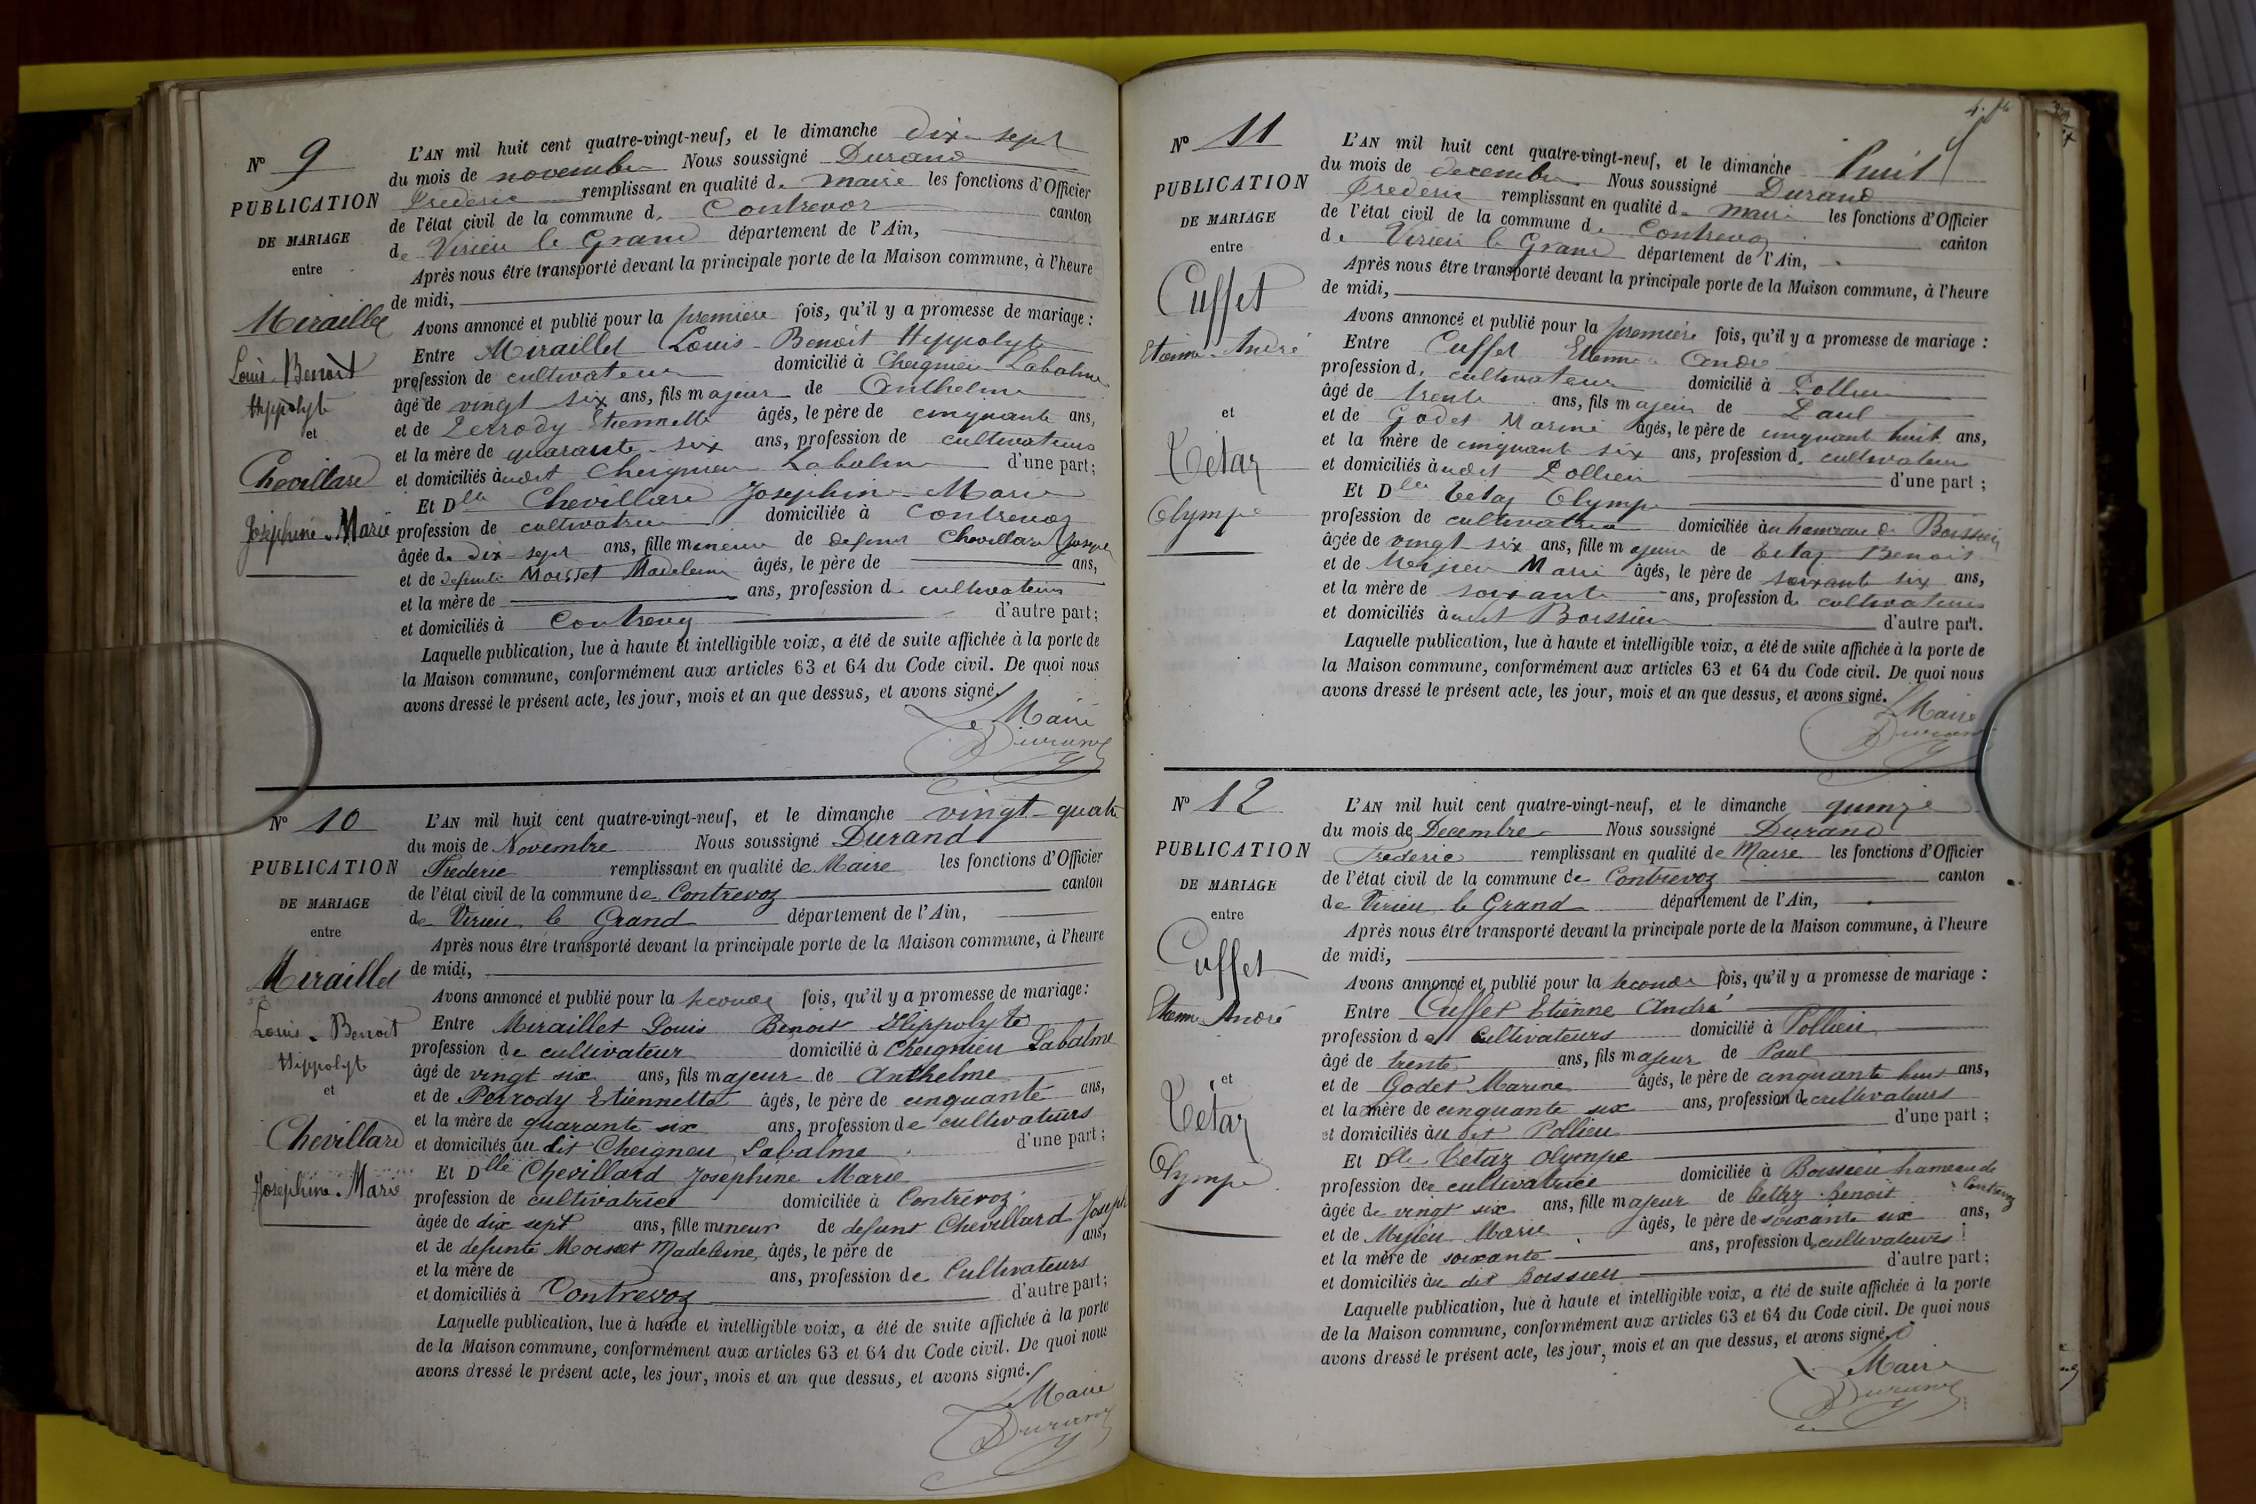 Nº 9
PUBLICATION
DE MARIAGE
entre
Miraillet
Louis-Benoit
Hippolyte
et
Chevillard
Joséphine-Marie
L'AN mil huit cent quatre-vingt-neuf, et le dimanche dix-sept
du mois de novembre Nous soussigné Durand
Frederic remplissant en qualité de maire les fonctions d'Officier
de l'état civil de la commune de Contrevoz canton
de Virieu le Grand département de l'Ain,
Après nous être transporté devant la principale porte de la Maison commune, à l'heure
de midi,
Avons annoncé et publié pour la première fois, qu'il y a promesse de mariage :
Entre Miraillet Louis-Benoit Hippolyte
profession de cultivateur domicilié à Cheignieu Labalme
âgé de vingt six ans, fils majeur de Anthelme
et de Perrody Etiennette âgés, le père de cinquante ans,
et la mère de quarante-six ans, profession de cultivateurs
et domiciliés àudit Cheignieu Labalme d'une part;
Et Dlle Chevillard Josephine-Marie
profession de cultivatrice domiciliée à Contrevoz
âgée de dix-sept ans, fille mineure de defunt Chevillard Joseph
et de defunte Moisset Madeleine âgés, le père de ans,
et la mère de ans, profession de cultivateurs
et domiciliés à Contrevoz d'autre part;
Laquelle publication, lue à haute et intelligible voix, a été de suite affichée à la porte de
la Maison commune, conformément aux articles 63 et 64 du Code civil. De quoi nous
avons dressé le présent acte, les jour, mois et an que dessus, et avons signé.
Le Maire
Durand
Nº 10
PUBLICATION
DE MARIAGE
entre
Miraillet
Louis-Benoit
Hippolyte
et
Chevillard
Joséphine-Marie
L'AN mil huit cent quatre-vingt-neuf, et le dimanche vingt-quatre
du mois de Novembre Nous soussigné Durand
Frederic remplissant en qualité de Maire les fonctions d'Officier
de l'état civil de la commune de Contrevoz canton
de Virieu le Grand département de l'Ain,
Après nous être transporté devant la principale porte de la Maison commune, à l'heure
de midi,
Avons annoncé et publié pour la seconde fois, qu'il y a promesse de mariage:
Entre Miraillet Louis Benoit Hippolyte
profession de cultivateur domicilié à Cheignieu Labalme
âgé de vingt six ans, fils majeur de Anthelme
et de Perrody Etiennette âgés, le père de cinquante ans,
et la mère de quarante six ans, profession de cultivateurs
et domiciliés àu dit Cheigneu Labalme d'une part;
Et Dlle Chevillard Josephine Marie
profession de cultivatrice domiciliée à Contrevoz
âgée de dix sept ans, fille mineur de defunt Chevillard Joseph
et de defunte Moisset Madeleine, âgés, le père de ans,
et la mère de ans, profession de Cultivateurs
et domiciliés à Contrevoz d'autre part;
Laquelle publication, lue à haute et intelligible voix, a été de suite affichée à la porte
de la Maison commune, conformément aux articles 63 et 64 du Code civil. De quoi nous
avons dressé le présent acte, les jour, mois et an que dessus, et avons signé.
Le Maire
Durand
Nº 11
PUBLICATION
DE MARIAGE
entre
Cuffet
Etienne-André
et
Tétaz
Olympe
L'AN mil huit cent quatre-vingt-neuf, et le dimanche huit
du mois de decembre Nous soussigné Durand
Frederic remplissant en qualité de maire les fonctions d'Officier
de l'état civil de la commune de Contrevoz canton
de Virieu le Grand département de l'Ain,
Après nous être transporté devant la principale porte de la Maison commune, à l'heure
de midi,
Avons annoncé et publié pour la première fois, qu'il y a promesse de mariage :
Entre Cuffet Etienne André
profession de cultivateur domicilié à Pollieu
âgé de trente ans, fils majeur de Paul
et de Godet Marine âgés, le père de cinquant huit ans,
et la mère de cinquant six ans, profession de cultivateur
et domiciliés àudit Pollieu d'une part ;
Et Dlle Tetaz Olympe
profession de cultivatrice domiciliée àu hameau de Boissieu
âgée de vingt six ans, fille majeur de Tetaz Benoit
et de Meyrieu Marie âgés, le père de soixante six ans,
et la mère de soixante ans, profession de cultivateurs
et domiciliés àudit Boissieu d'autre part.
Laquelle publication, lue à haute et intelligible voix, a été de suite affichée à la porte de
la Maison commune, conformément aux articles 63 et 64 du Code civil. De quoi nous
avons dressé le présent acte, les jour, mois et an que dessus, et avons signé.
Le Maire
Durand
Nº 12
PUBLICATION
DE MARIAGE
entre
Cuffet
Etienne André
et
Tétaz
Olympe
L'AN mil huit cent quatre-vingt-neuf, et le dimanche quinze
du mois de Decembre Nous soussigné Durand
Frederic remplissant en qualité de Maire les fonctions d'Officier
de l'état civil de la commune de Contrevoz canton
de Virieu le Grand département de l'Ain,
Après nous être transporté devant la principale porte de la Maison commune, à l'heure
de midi,
Avons annoncé et publié pour la seconde fois, qu'il y a promesse de mariage :
Entre Cuffet Etienne André
profession de cultivateurs domicilié à Pollieu
âgé de trente ans, fils majeur de Paul
et de Godet Marine âgés, le père de cinquante huit ans,
et la mère de cinquante six ans, profession de cultivateurs
et domiciliés àu dit Pollieu d'une part ;
Et Dlle Tetaz Olympe
profession de cultivatrice domiciliée à Boissieu hameau de Contrevoz
âgée de vingt six ans, fille majeur de Tettaz Benoit
et de Myrieu Marie âgés, le père de soixante six ans,
et la mère de soixante ans, profession de cultivateurs
et domiciliés àu dit Boissieu d'autre part;
Laquelle publication, lue à haute et intelligible voix, a été de suite affichée à la porte
de la Maison commune, conformément aux articles 63 et 64 du Code civil. De quoi nous
avons dressé le présent acte, les jour, mois et an que dessus, et avons signé.
Le Maire
Durand